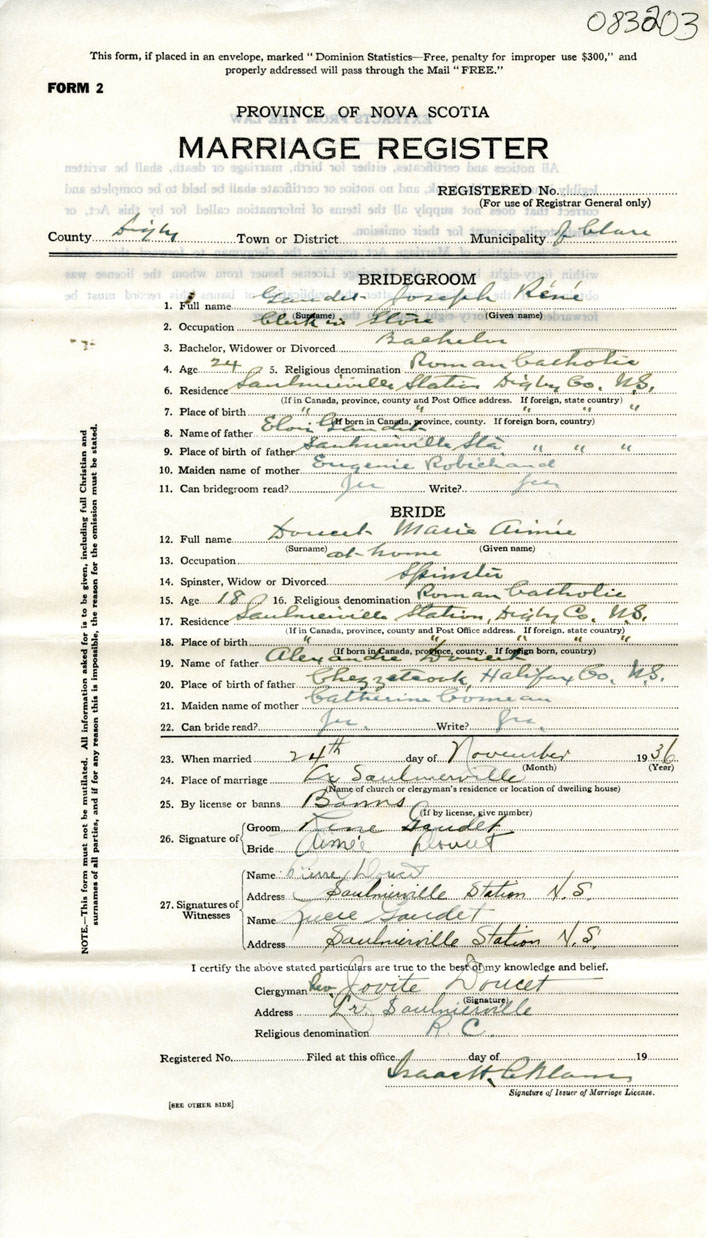 083203
This form, if placed in an envelope, marked "Dominion Statistics—Free, penalty for improper use $300," and
properly addressed will pass through the Mail "FREE."
FORM 2
PROVINCE OF NOVA SCOTIA
MARRIAGE REGISTER
REGISTERED No.
(For use of Registrar General only)
County Digby Town or District Municipality of Clare
BRIDEGROOM
1. Full name Gaudet Joseph Réné
(Surname) (Given name)
2. Occupation Clerk in Store
3. Bachelor, Widower or Divorced Bachelor
4. Age 24 5. Religious denomination Roman Catholic
6. Residence Saulnierville Station Digby Co. N.S.
(If in Canada, province, county and Post Office address. If foreign, state country)
7. Place of birth " " " " "
(If born in Canada, province, county. If foreign born, country)
8. Name of father Eloi Gaudet
9. Place of birth of father Saulnierville Sta " " "
10. Maiden name of mother Eugenie Robichaud
11. Can bridegroom read? Yes Write? Yes
BRIDE
12. Full name Doucet Marie Aimée
(Surname) (Given name)
13. Occupation at home
14. Spinster, Widow or Divorced Spinster
15. Age 18 16. Religious denomination Roman Catholic
17. Residence Saulnierville Station, Digby Co. N.S.
(If in Canada, province, county and Post Office address. If foreign, state country)
18. Place of birth " " " " "
(If born in Canada, province, county. If foreign born, country)
19. Name of father Alexandre Doucet
20. Place of birth of father Chezzetcook, Halifax Co. N.S.
21. Maiden name of mother Catherine Comeau
22. Can bride read? Yes. Write? Yes.
23. When married 24th day of November 1936
(Month) (Year)
24. Place of marriage Lr Saulnierville
(Name of church or clergyman's residence or location of dwelling house)
25. By license or banns Banns
(If by license, give number)
26. Signature of Groom Réné Gaudet
Bride Aimée Doucet
27. Signatures of Witnesses
Name Pierre Doucet
Address Saulnierville Station N.S.
Name Gaudet
Address Saulnierville Station N.S.
I certify the above stated particulars are true to the best of my knowledge and belief.
Clergyman Rev Jovite Doucet
(Signature)
Address Lr. Saulnierville
Religious denomination R. C.
Registered No. Filed at this office day of 19
Signature of Issuer of Marriage License.
[SEE OTHER SIDE]
NOTE.—This form must not be mutilated. All information asked for is to be given, including full Christian and
surnames of all parties, and if for any reason this is impossible, the reason for the omission must be stated.